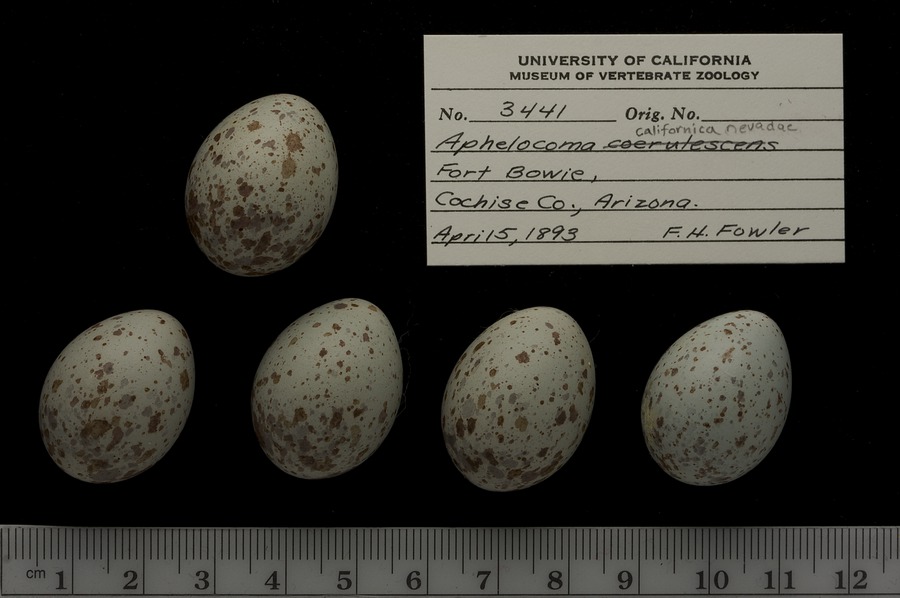 UNIVERSITY OF CALIFORNIA
MUSEUM OF VERTEBRATE ZOOLOGY
No. 3441 Orig. No.
californica nevadae
Aphelocoma coerulescens
Fort Bowie,
Cochise Co., Arizona.
April 5, 1893 F.H. Fowler
cm 1 2 3 4 5 6 7 8 9 10 11 12